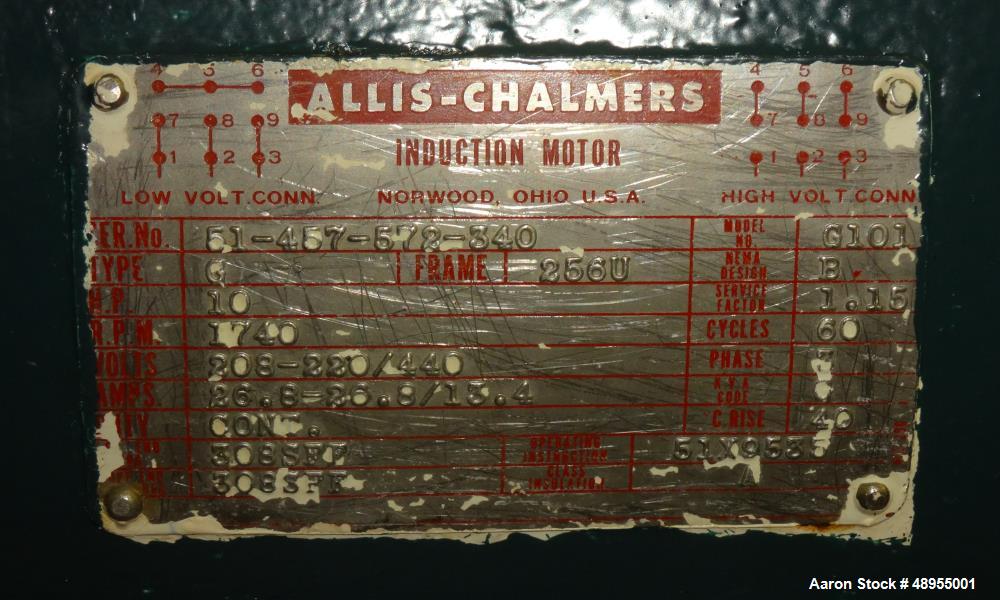 4 5 6 ALLIS-CHALMERS 4 5 6
7 8 9 7 8 9
1 2 3 INDUCTION MOTOR 1 2 3
LOW VOLT.CONN. NORWOOD, OHIO U.S.A. HIGH VOLT CONN
SER.No. 51-457-572-340 MODEL NO. G101
TYPE G FRAME 256U NEMA DESIGN B
H.P. 10 SERVICE FACTOR 1.15
R.P.M. 1740 CYCLES 60
VOLTS 208-220/440 PHASE 3
AMPS. 26.8-26.8/13.4 K.V.A. CODE
CONT. C RISE 40
308SFF OPERATING INSTRUCTION 51X953
308SFF CLASS INSULATION A
Aaron Stock # 48955001